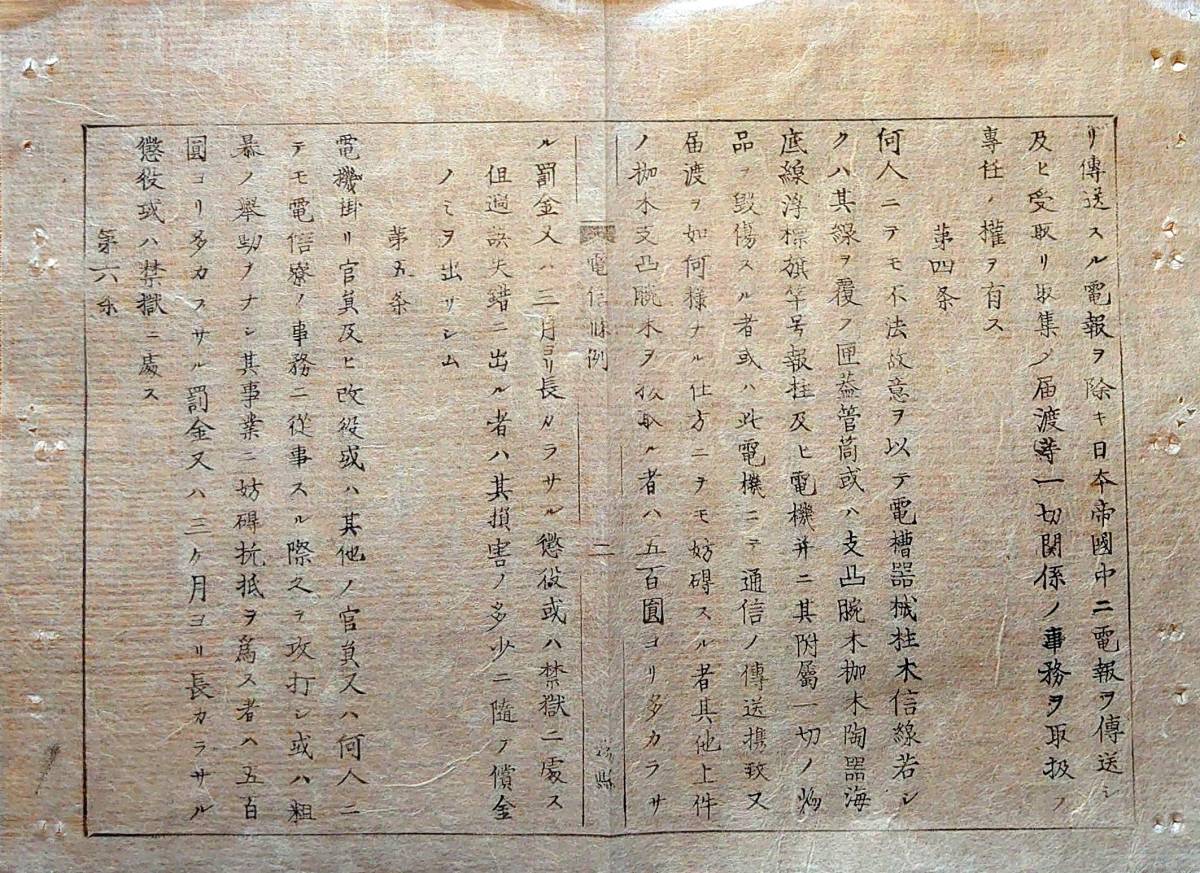 リ傳送スル電報ヲ除キ日本帝國中ニ電報ヲ傳送シ
及ヒ受取リ取集メ届渡等一切関係ノ事務ヲ取扱フ
專任ノ權ヲ有ス
第四条
何人ニテモ不法故意ヲ以テ電槽器械柱木信線若シ
クハ其線ヲ覆フ匣葢管筒或ハ支凸腕木枷木陶器海
底線浮標旗竿号報柱及ヒ電機并ニ其附屬一切ノ物
品ヲ毀傷スル者或ハ此電機ニテ通信ノ傳送携致又
届渡ヲ如何様ナル仕方ニテモ妨碍スル者其他上件
ノ枷木支凸腕木ヲ抜取ル者ハ五百圓ヨリ多カラサ
電信條例
二
縣
ル罰金又ハ三ヶ月ヨリ長カラサル懲役或ハ禁獄ニ處ス
但過誤失錯ニ出ル者ハ其損害ノ多少ニ隨テ償金
ノミヲ出サシム
第五条
電機掛リ官員及ヒ改役或ハ其他ノ官員又ハ何人ニ
テモ電信寮ノ事務ニ從事スル際之ヲ攻打シ或ハ粗
暴ノ舉動ヲナシ其事業ニ妨碍抗抵ヲ爲ス者ハ五百
圓ヨリ多カラサル罰金又ハ三ヶ月ヨリ長カラサル
懲役或ハ禁獄ニ處ス
第六条